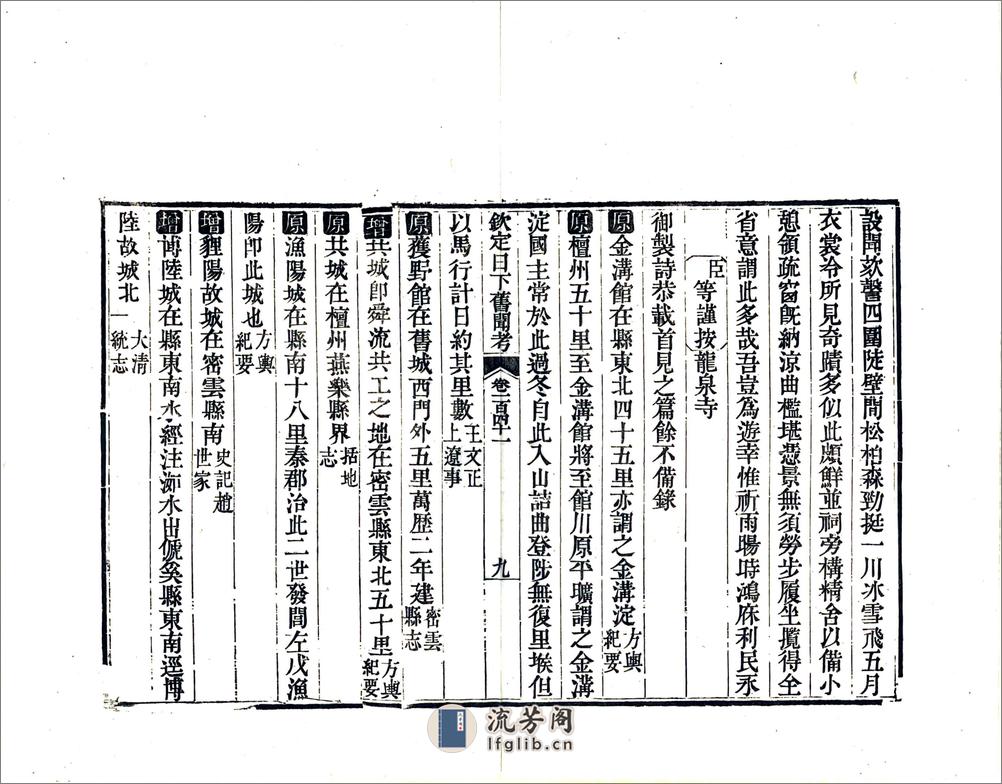 設聞欬謦四圍陡壁間松柏森勁挺一川冰雪飛五月
衣裳冷所見奇蹟多似此頗鮮並祠旁構精舍以備小
憩領疏窗既納涼曲檻堪憑景無須勞步履坐攬得全
省意謂此多哉吾豈爲遊幸惟祈雨暘時鴻庥利民永
臣等謹按龍泉寺
御製詩恭載首見之篇餘不備錄
原金溝館在縣東北四十五里亦謂之金溝淀方輿紀要
原檀州五十里至金溝館將至館川原平曠謂之金溝
淀國主常於此過冬自此入山詰曲登陟無復里堠但
欽定日下舊聞考 卷一百四十一 九
以馬行計日約其里數王文正上遼事
原獲野館在舊城西門外五里萬歴二年建密雲縣志
增共城卽舜流共工之地在密雲縣東北五十里方輿紀要
原共城在檀州燕樂縣界括地志
原漁陽城在縣南十八里秦郡治此二世發閭左戍漁
陽卽此城也方輿紀要
增貍陽故城在密雲縣南史記趙世家
增博陸城在縣東南水經注泃水出傂奚縣東南逕博
陸故城北大清一統志
流芳阁
lfglib.cn